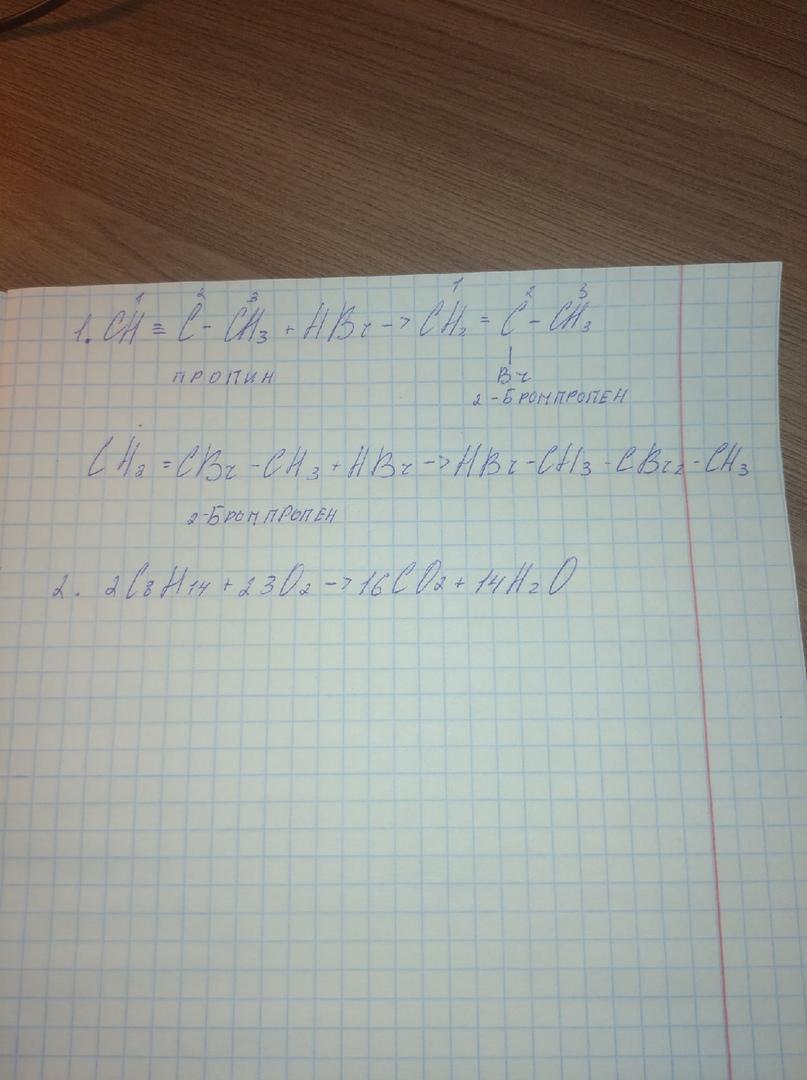 1 2 3 1 2 3
1. CH ≡ C - CH3 + HBr -> CH2 = C - CH3
|
Br
ПРОПИН
2-БРОМПРОПЕН
CH2 = CBr - CH3 + HBr -> HBr - CH3 - CBr2 - CH3
2-БРОМПРОПЕН
2. 2C8H14 + 23O2 -> 16CO2 + 14H2O